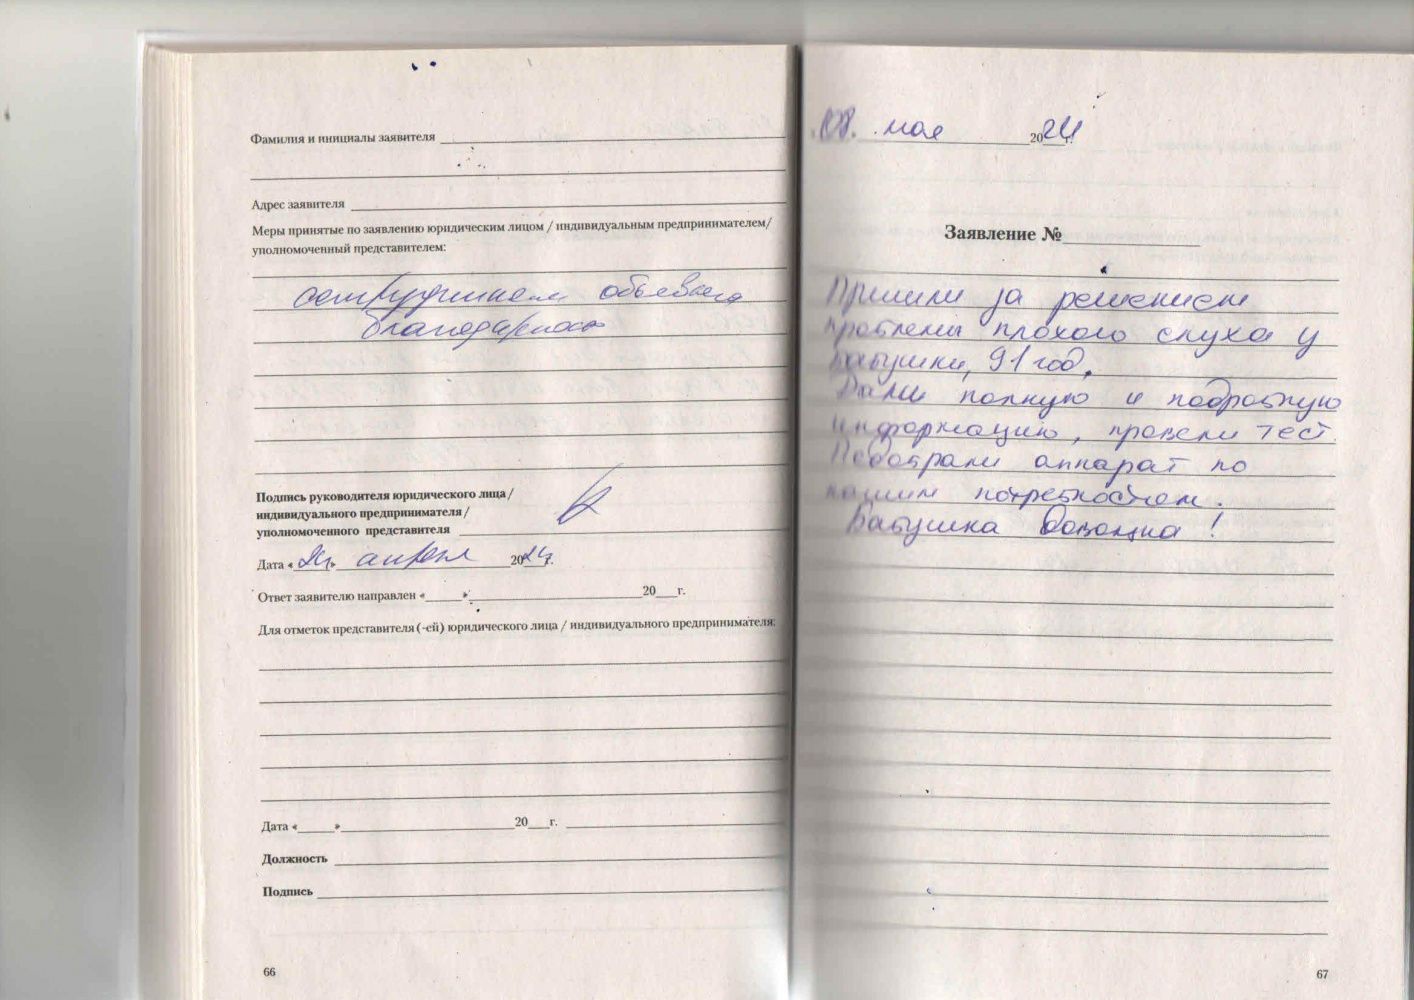 Фамилия и инициалы заявителя
Адрес заявителя
Меры принятые по заявлению юридическим лицом / индивидуальным предпринимателем/
уполномоченный представителем:
сотрудникам объявлена
благодарность
Подпись руководителя юридического лица/
индивидуального предпринимателя/
уполномоченного представителя
Дата «24» апреля 2024г.
Ответ заявителю направлен «____»____20___г.
Для отметок представителя (-ей) юридического лица / индивидуального предпринимателя:
Дата «____»____20___г.
Должность
Подпись
66
08. мая 2024г.
Заявление №
Пришли за решением
проблемы плохого слуха у
бабушки, 91 год.
Дали полную и подробную
информацию, провели тест.
Подобрали аппарат по
нашим потребностям.
Бабушка довольна!
67